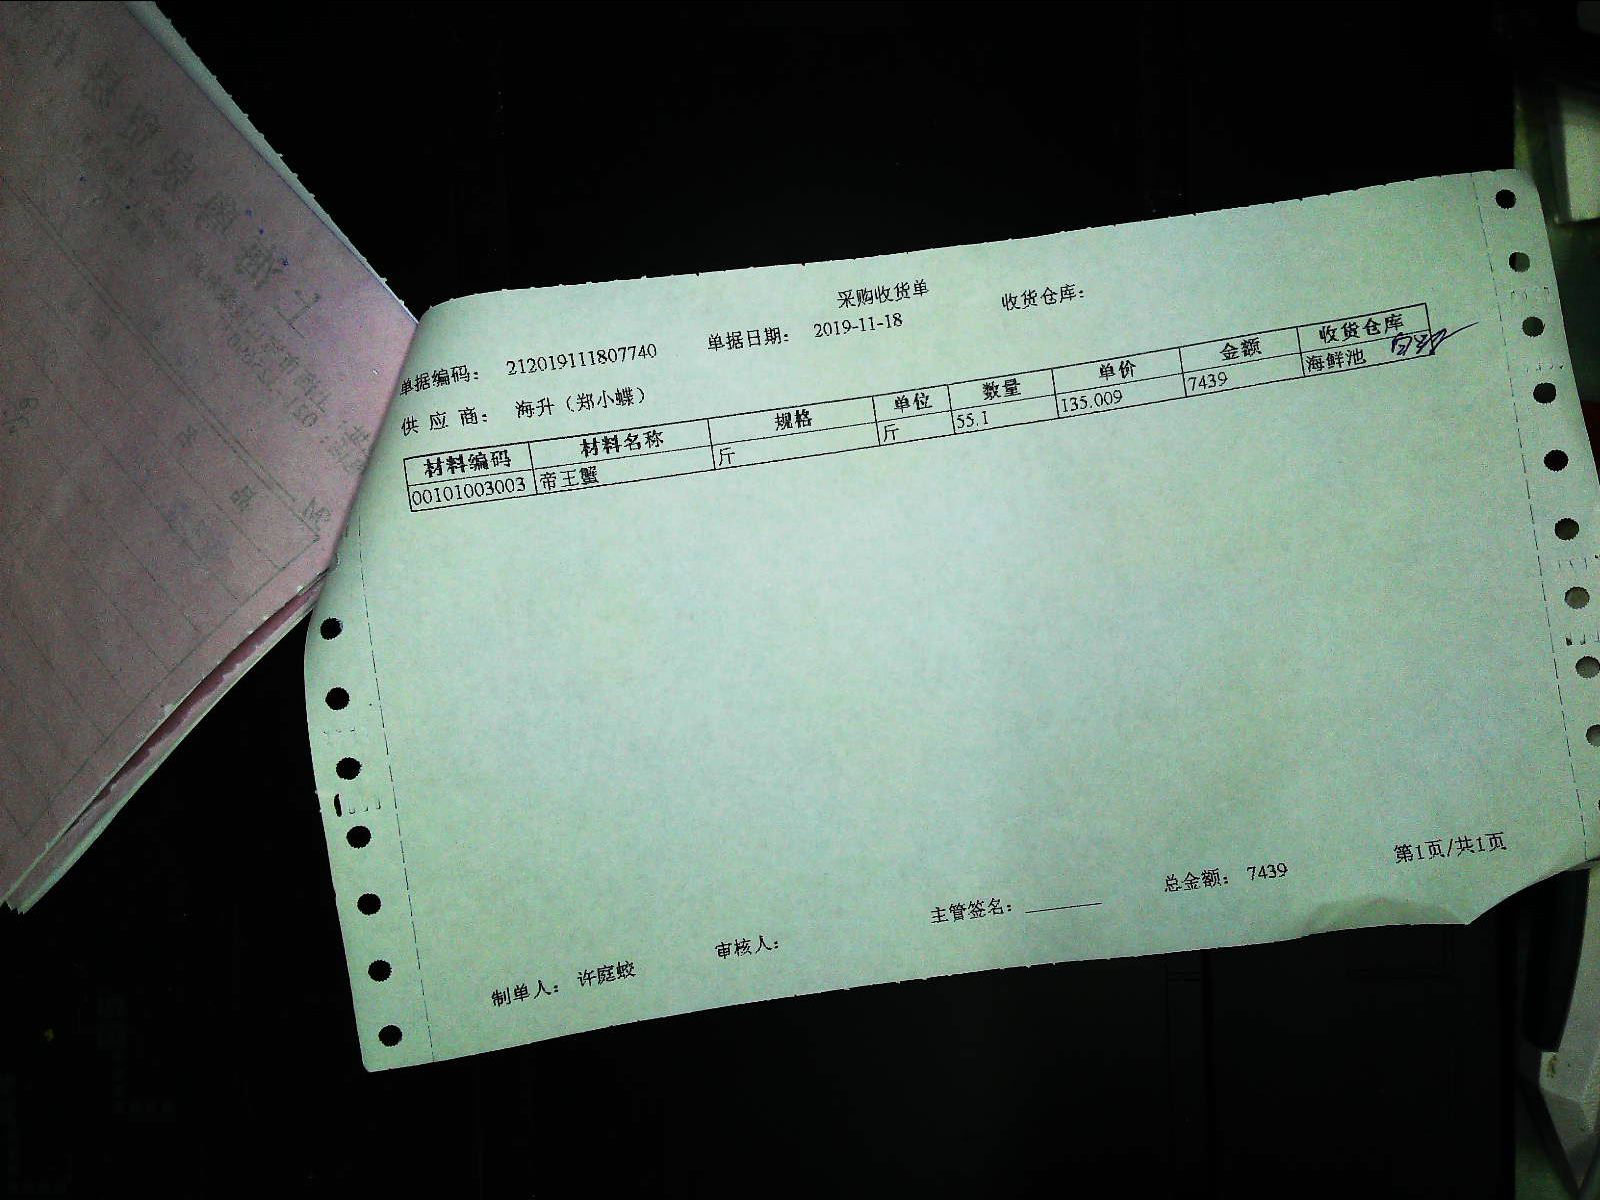 采购收货单
单据编码： 212019111807740 单据日期： 2019-11-18 收货仓库：
供 应 商： 海升（郑小蝶）
材料编码 材料名称 规格 单位 数量 单价 金额 收货仓库
00101003003 帝王蟹 斤 斤 55.1 135.009 7439 海鲜池
制单人： 许庭蛟 审核人： 主管签名： 总金额： 7439 第1页/共1页